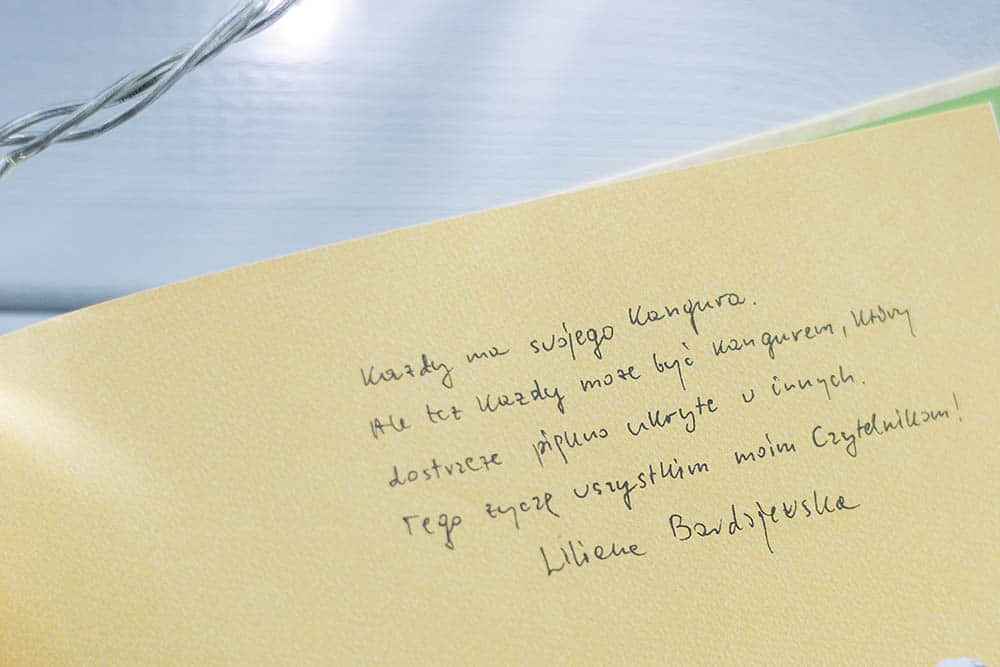 Każdy ma swojego Kangura.
Ale też Każdy może być Kangurem, Który
dostrzeże piękno ukryte w innych.
Tego życzę wszystkim moim Czytelnikom!
Liliana Bardijewska